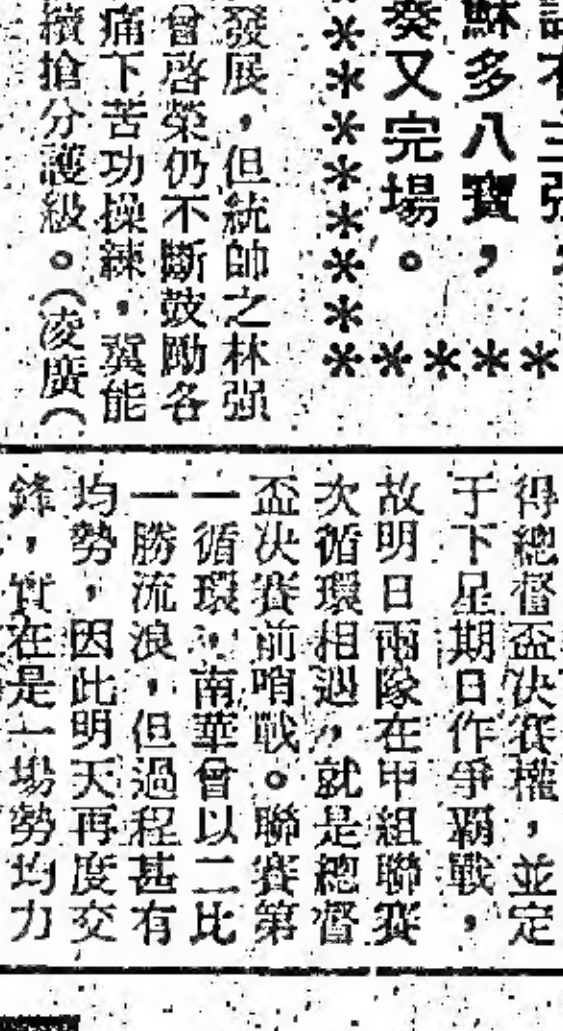 蘇多八寶，
奏又完場。
發展，但統帥之林强
曾啓榮仍不斷鼓勵各
痛下苦功操練，冀能
續搶分護級。（凌廣（
得總督盃決賽權，並定
于下星期日作爭覇戰，
故明日兩隊在甲組聯賽
次循環相遇，就是總督
盃決賽前哨戰。聯賽第
一循環，南華曾以二比
一勝流浪，但過程甚有
均勢，因此明天再度交
鋒，實在是一場勢均力